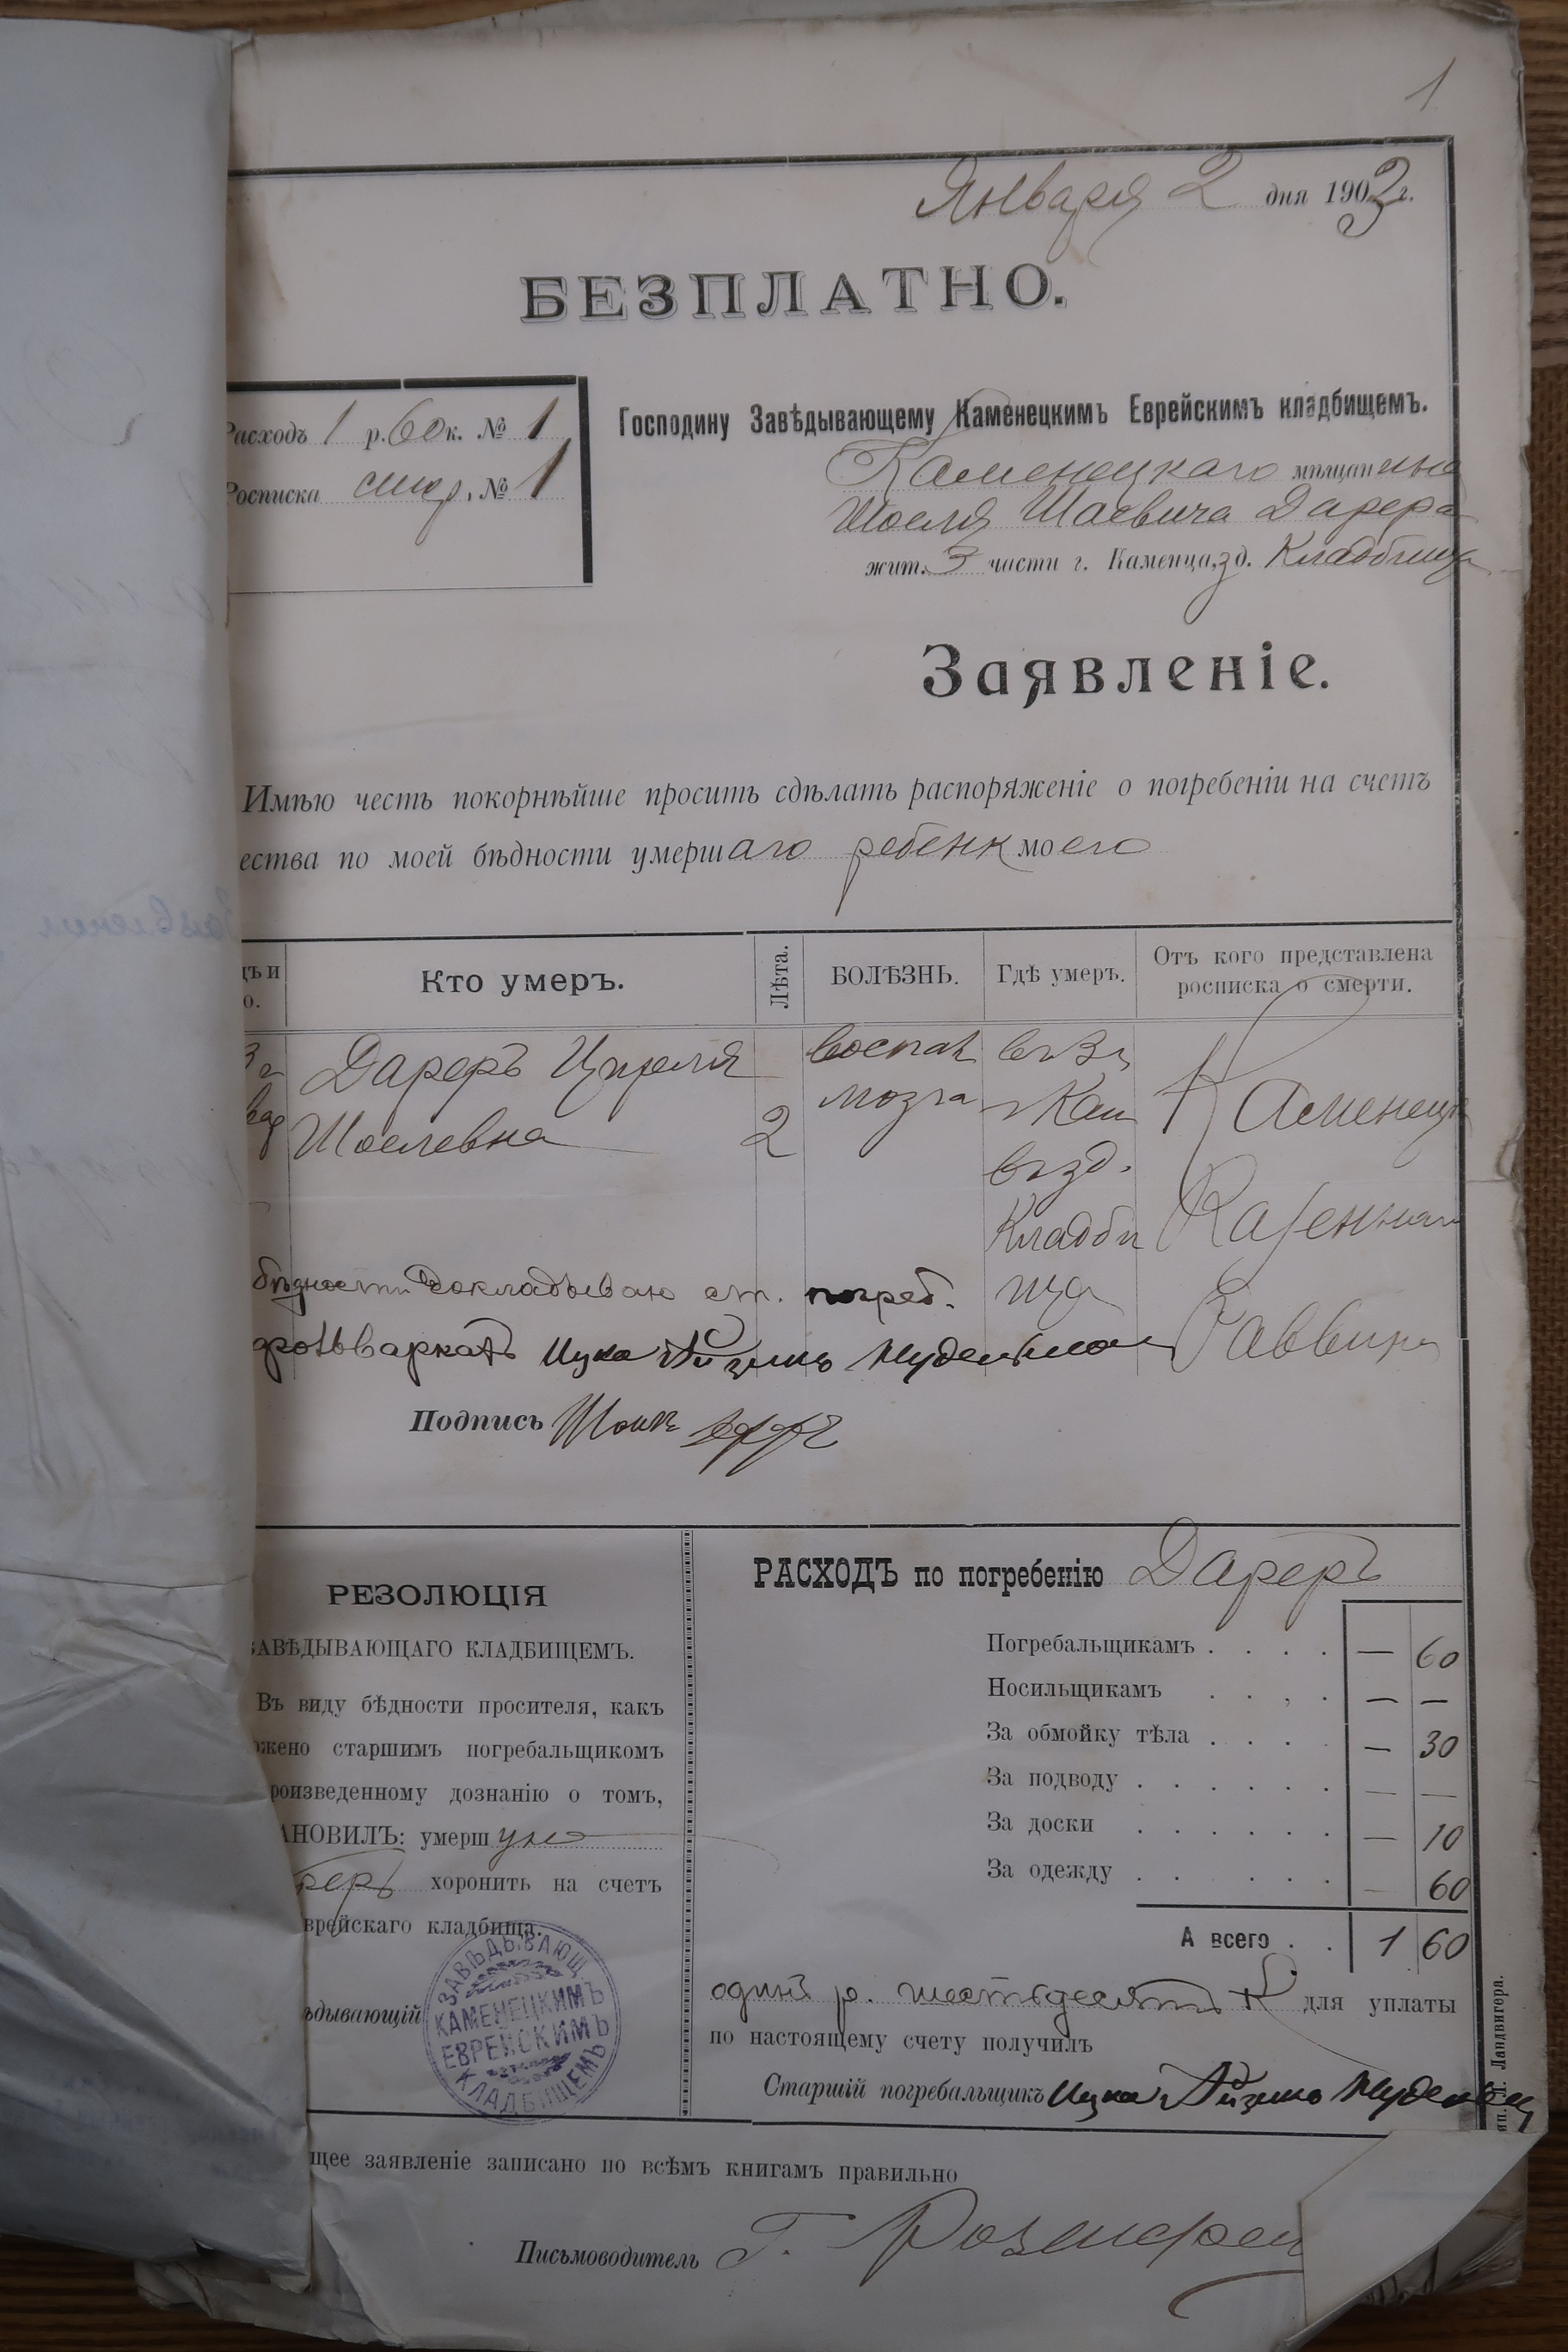 1
Января 2 дня 1903 г.
БЕЗПЛАТНО.
Расходъ 1 р. 60 к. № 1
Росписка № 1
Господину Завѣдывающему Каменецкимъ Еврейскимъ кладбищемъ.
Каменецкаго мѣщанина
Шоеля Шаевича Дарера
жит. 3 части г. Каменца, зд. Кладбища
Заявленіе.
Имѣю честь покорнѣйше просить сдѣлать распоряженіе о погребеніи на счетъ
ества по моей бѣдности умершаго ребенк моего
ъ и
о.
Кто умеръ.
Лѣта.
БОЛѢЗНЬ.
Гдѣ умеръ.
Отъ кого представлена
росписка о смерти.
Дареръ Ципеля
Шоелевна
2
воспал
мозга
въ 3 ч
г Кам
въ зд.
Кладби
ща
Каменецк
Казеннаг
Раввина
бѣдности докладываю ст. погреб.
Ицко Айзикъ Нудельман
Подпись
РЕЗОЛЮЦІЯ
ЗАВѢДЫВАЮЩАГО КЛАДБИЩЕМЪ.
Въ виду бѣдности просителя, какъ
ожено старшимъ погребальщикомъ
роизведенному дознанію о томъ,
АНОВИЛЪ: умерш ую
реръ хоронить на счетъ
врейскаго кладбища.
ѣдывающій
ЗАВѢДЫВАЮЩ.
КАМЕНЕЦКИМЪ
ЕВРЕЙСКИМЪ
КЛАДБИЩЕМЪ
РАСХОДЪ по погребенію Дареръ
Погребальщикамъ . . . . — 60
Носильщикамъ . . , . — —
За обмойку тѣла . . . . — 30
За подводу . . . . . . — —
За доски . . . . . . — 10
За одежду . . . . . . — 60
А всего . . 1 60
одинъ р. шестьдесятъ к для уплаты
по настоящему счету получилъ
Старшій погребальщикъ Ицко Айзикъ Нудельман
Ландвигера.
щее заявленіе записано по всѣмъ книгамъ правильно
Письмоводитель Г. Розенфел